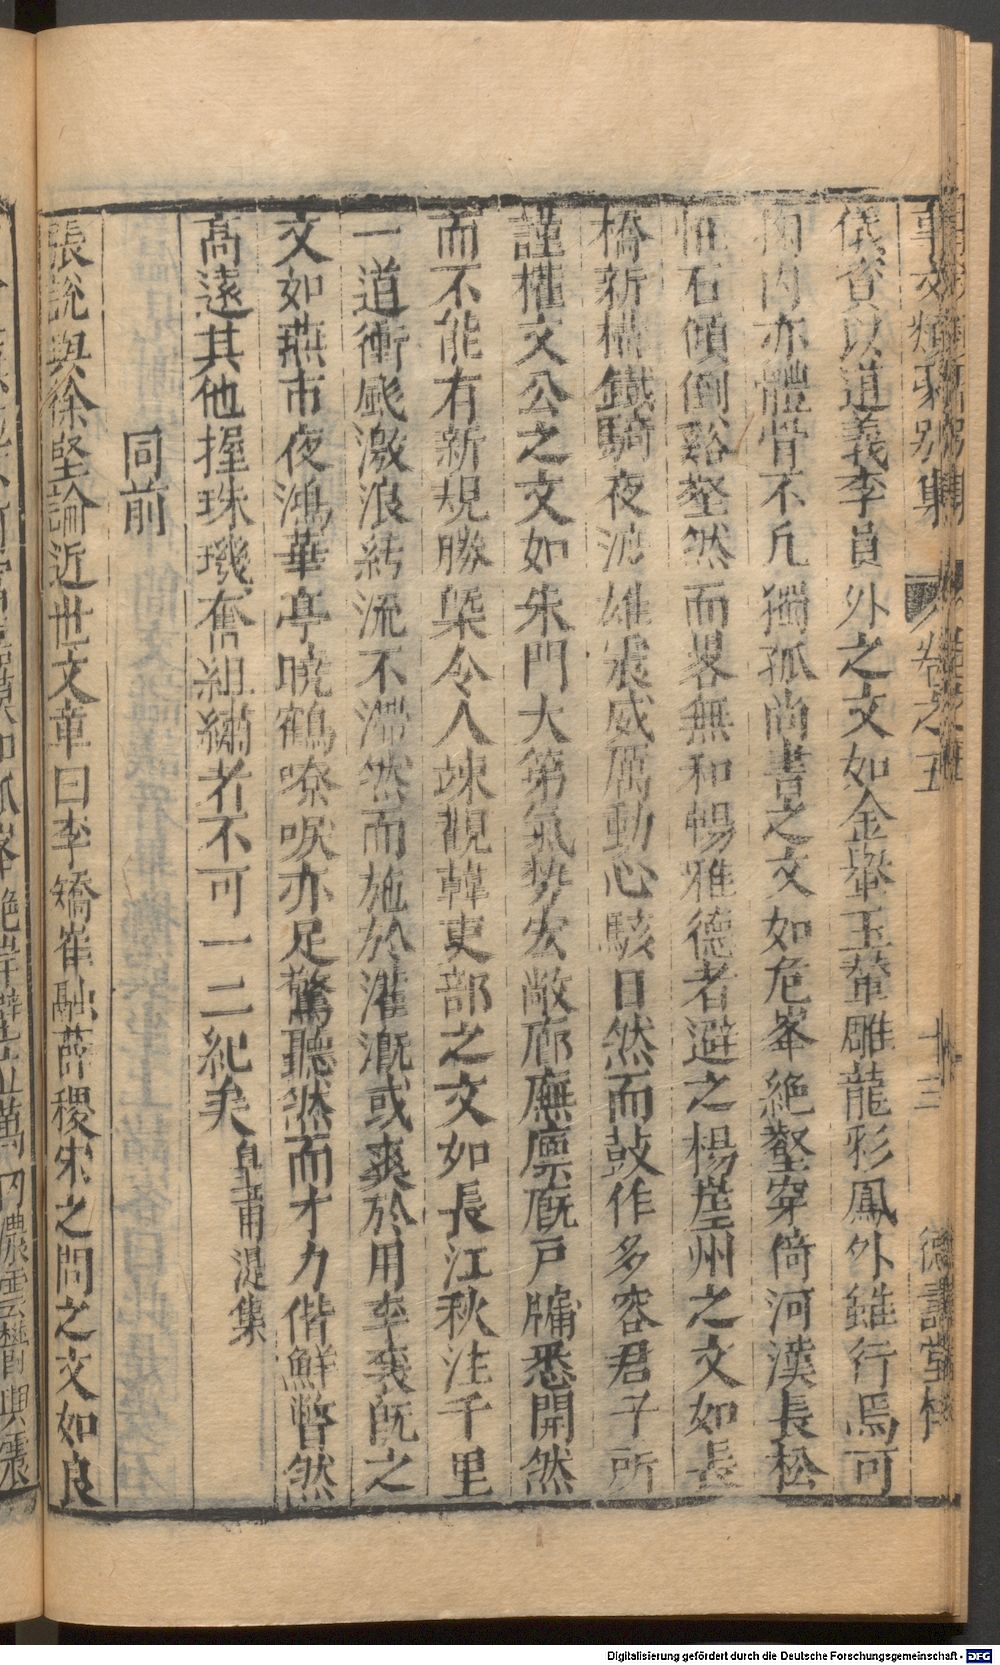 事文類聚別集 卷之五 十三 德壽堂梓
儀資以道義李員外之文如金轝玉輦雕龍彩鳳外雖行焉可
掬内亦體骨不凡獨孤尚書之文如危峯絶壑穿倚河漢長松
恠石傾倒谿壑然而畧無和暢雅德者避之楊崖州之文如長
橋新構鐵騎夜渡雄震威厲動心駭目然而鼓作多容君子所
謹權文公之文如朱門大第氣势宏敞廊廡廪厩戸牖悉開然
而不能有新規勝槩令人竦觀韓吏部之文如長江秋注千里
一道衝飈激浪紆流不滯然而施於灌漑或爽於用李襄既之
文如燕市夜鴻華亭曉鶴嘹唳亦足驚聽然而才力偕鮮瞥然
髙遠其他握珠璣奮組繡者不可一二紀矣 皇甫湜集
同前
張說與徐堅論近世文章曰李嶠崔融薛稷宋之問之文如良
Digitalisierung gefördert durch die Deutsche Forschungsgemeinschaft - DFG